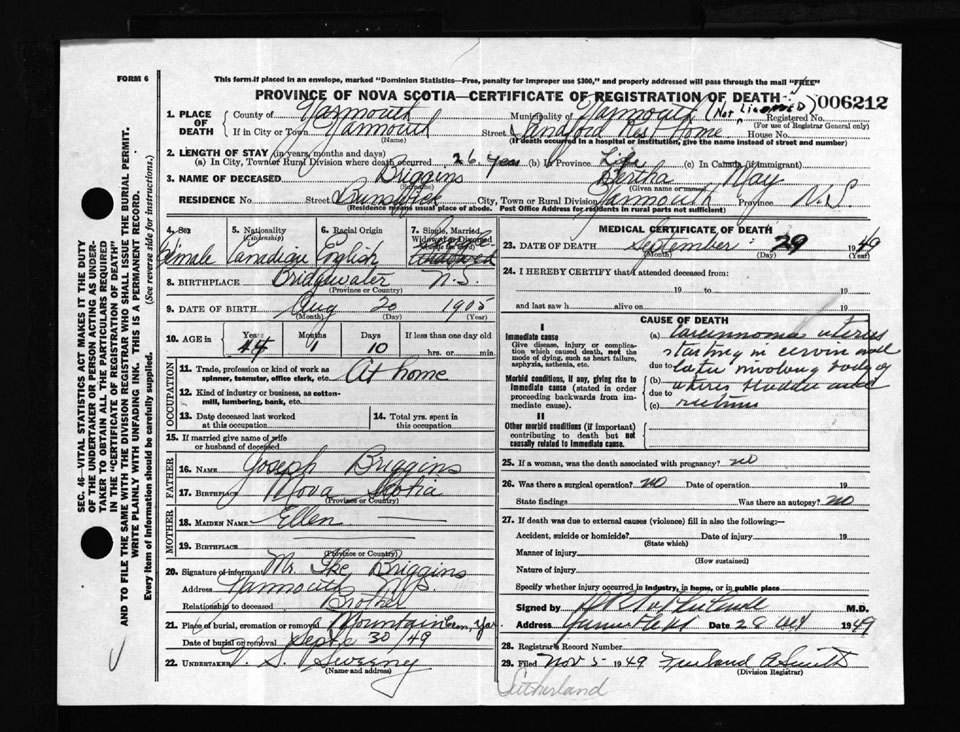 FORM 6
This form if placed in an envelope, marked "Dominion Statistics—Free, penalty for improper use $300," and properly addressed will pass through the mail "FREE"
PROVINCE OF NOVA SCOTIA—CERTIFICATE OF REGISTRATION OF DEATH
006212
1. PLACE OF DEATH
County of Yarmouth
Municipality of Yarmouth (Not Licensed)
Registered No.
(For use of Registrar General only)
If in City or Town Yarmouth
(Name)
Street Sandford Rest Home House No.
(If death occurred in a hospital or institution, give the name instead of street and number)
2. LENGTH OF STAY (in years, months and days)
(a) In City, Town or Rural Division where death occurred 26 years (b) In Province Life (c) In Canada (if immigrant)
3. NAME OF DECEASED Briggins Bertha May
(Surname) (Given name or names)
RESIDENCE No. Street Brunswick City, Town or Rural Division Yarmouth Province N.S.
(Residence means usual place of abode. Post Office Address for residents in rural parts not sufficient)
4. Sex
Female
5. Nationality
(Citizenship)
Canadian
6. Racial Origin
English
7. Single, Married, Widowed or Divorced
8. BIRTHPLACE Bridgewater N.S.
(Province or Country)
9. DATE OF BIRTH Aug 20 1905
(Month) (Day) (Year)
10. AGE in Years 44 Months 1 Days 10 If less than one day old
hrs. or min.
OCCUPATION
11. Trade, profession or kind of work as spinner, teamster, office clerk, etc. At home
12. Kind of industry or business, as cotton-mill, lumbering, bank, etc.
13. Date deceased last worked at this occupation
14. Total yrs. spent in this occupation
15. If married give name of wife or husband of deceased
FATHER
16. NAME Joseph Briggins
17. BIRTHPLACE Nova Scotia
(Province or Country)
MOTHER
18. MAIDEN NAME Ellen
19. BIRTHPLACE
(Province or Country)
20. Signature of informant Mr. Ike Briggins
Address Yarmouth N.S.
Relationship to deceased Brother
21. Place of burial, cremation or removal Mountain Cem, Yar.
Date of burial or removal Sept. 30/49
22. UNDERTAKER V. S. Sweeny
(Name and address)
MEDICAL CERTIFICATE OF DEATH
23. DATE OF DEATH September 29 1949
(Month) (Day) (Year)
24. I HEREBY CERTIFY that I attended deceased from:
19 to 19
and last saw h alive on 19
CAUSE OF DEATH
I
Immediate cause
Give disease, injury or complication which caused death, not the mode of dying, such as heart failure, asphyxia, asthenia, etc.
Morbid conditions, if any, giving rise to immediate cause (stated in order proceeding backwards from immediate cause).
II
Other morbid conditions (if important) contributing to death but not causally related to immediate cause.
(a) Carcinoma uterus
due to starting in cervix and
(b) later involving body of
due to uterus bladder and
(c) rectum
25. If a woman, was the death associated with pregnancy? no
26. Was there a surgical operation? no Date of operation 19
State findings Was there an autopsy? no
27. If death was due to external causes (violence) fill in also the following:—
Accident, suicide or homicide? Date of injury 19
(State which)
Manner of injury
(How sustained)
Nature of injury
Specify whether injury occurred in industry, in home, or in public place
Signed by M.D.
Address Date 28 1949
28. Registrar's Record Number
29. Filed Nov 5 1949 Smith
(Division Registrar)
Sutherland
SEC. 46—VITAL STATISTICS ACT MAKES IT THE DUTY
OF THE UNDERTAKER OR PERSON ACTING AS UNDER-
TAKER TO OBTAIN ALL THE PARTICULARS REQUIRED
IN THE "CERTIFICATE OF REGISTRATION OF DEATH"
AND TO FILE THE SAME WITH THE DIVISION REGISTRAR WHO SHALL ISSUE THE BURIAL PERMIT.
WRITE PLAINLY WITH UNFADING INK. THIS IS A PERMANENT RECORD.
Every item of information should be carefully supplied. (See reverse side for instructions.)